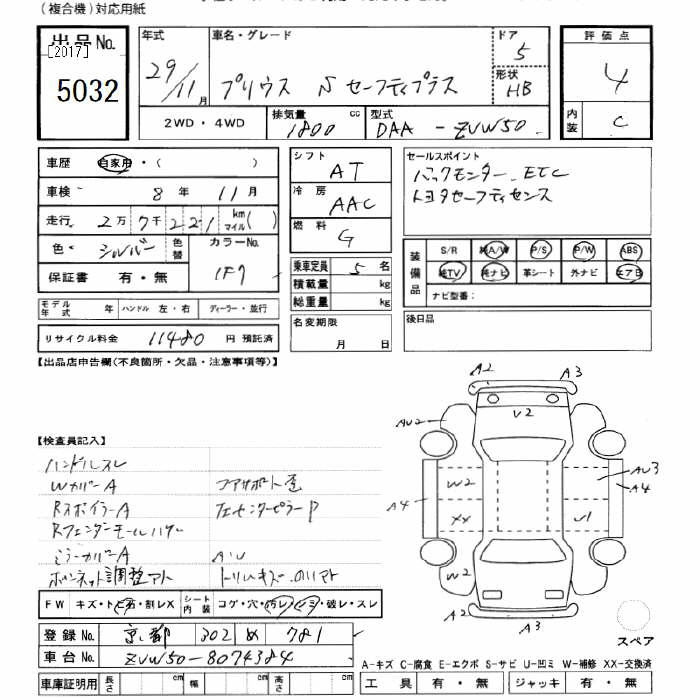 (複合機)対応用紙
出品No.
[2017]
5032
年式 29/11月
車名・グレード プリウス Sセーフティプラス
ドア 5
形状 HB
評価点 4
内装 C
2WD・4WD
排気量 1800 cc
型式 DAA-ZVW50
車歴 自家用・( )
車検 8年 11月
走行 2万7千221 km マイル( )
色 シルバー 色替
カラーNo. 1F7
保証書 有・無
シフト AT
冷房 AAC
燃料 G
セールスポイント
バックモニター、ETC
トヨタセーフティセンス
乗車定員 5名
積載量 kg
総重量 kg
装備品
S/R 純A/W P/S P/W ABS
純TV 純ナビ 革シート 外ナビ エアB
ナビ型番:
モデル年式 年 ハンドル 左・右 ディーラー・並行
名変期限 月 日
後日品
リサイクル料金 11480 円 預託済
【出品店申告欄(不良箇所・欠品・注意事項等)】
【検査員記入】
ハンドルスレ
WカバーA コアサポート歪
RスポイラーA 左センターピラーP
Rフェンダーモールハガレ
ミラーカバーA AU
ボンネット調整アト トリムキズ、のりアト
A2 A3
V2
AU2
W2
AU3
A4 A4
XX
U1
W2
A2 A3
スペア
FW キズ・トビ石・割レX シート内装 コゲ・穴・汚レ・シミ・破レ・スレ
登録No. 京都 302 め 781
車台No. ZVW50-8074384
A-キズ C-腐食 E-エクボ S-サビ U-凹ミ W-補修 XX-交換済
車庫証明用 長さ cm 幅 cm 高さ cm
工具 有・無 ジャッキ 有・無